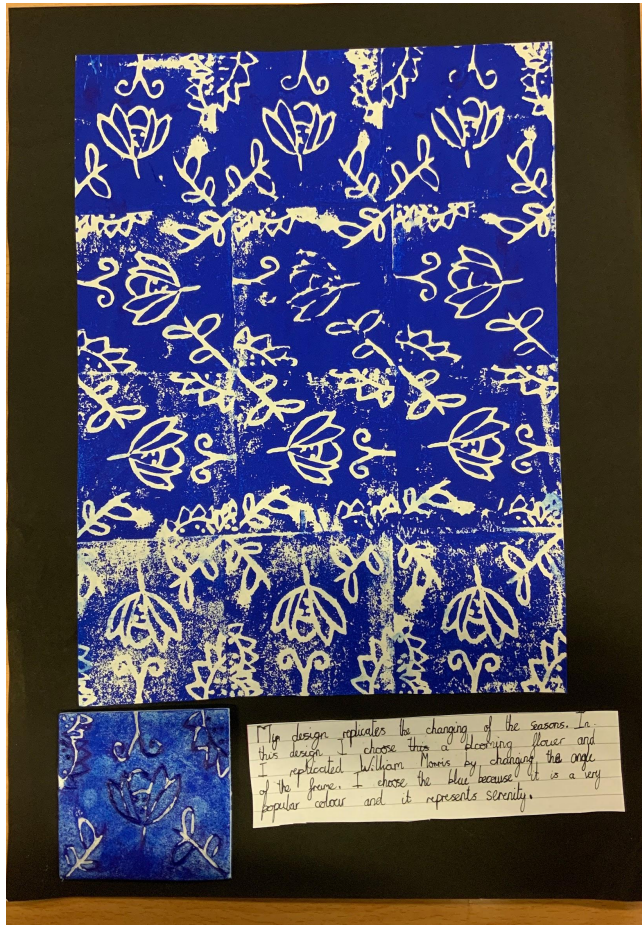 My design replicates the changing of the seasons. In
this design I choose this a blooming flower and
I replicated William Morris by changing the angle
of the frame. I choose the blue because it is a very
popular colour and it represents serenity.